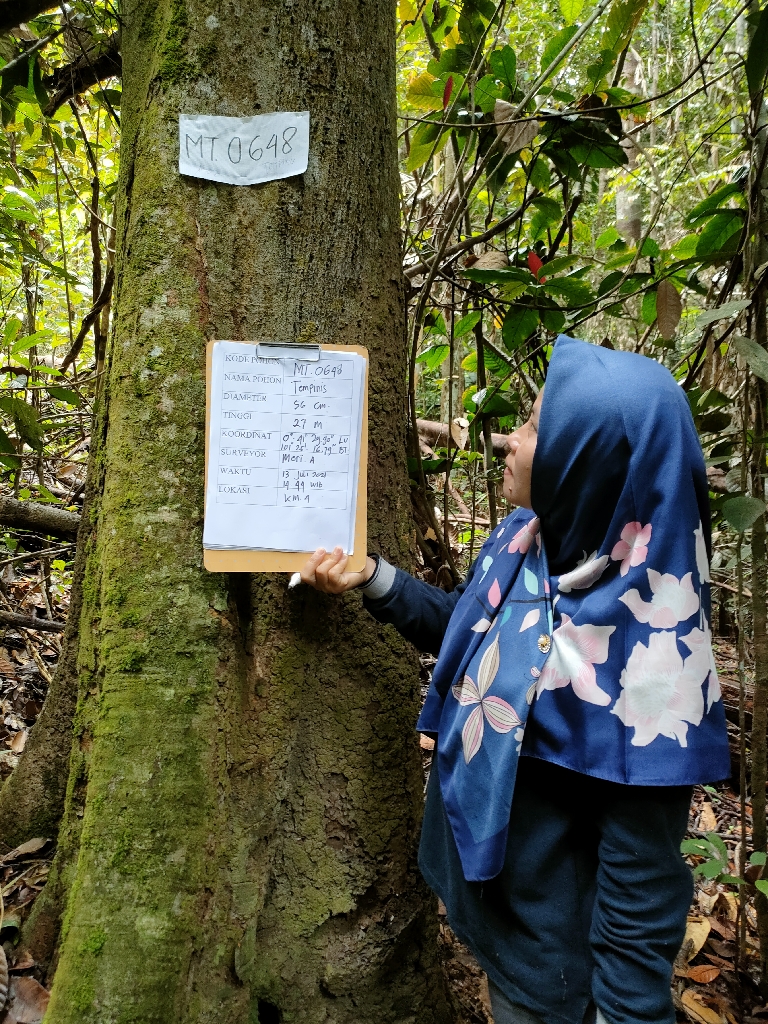 MT. 0648
KODE POHON MT. 0648
NAMA POHON Tempinis
DIAMETER 56 cm.
TINGGI 27 M
KOORDINAT 0° 41' 29.90" LU
101° 25' 16.79" BT
SURVEYOR Meri A
WAKTU 13 Juli 2021
14 44 WIB
LOKASI KM. 4